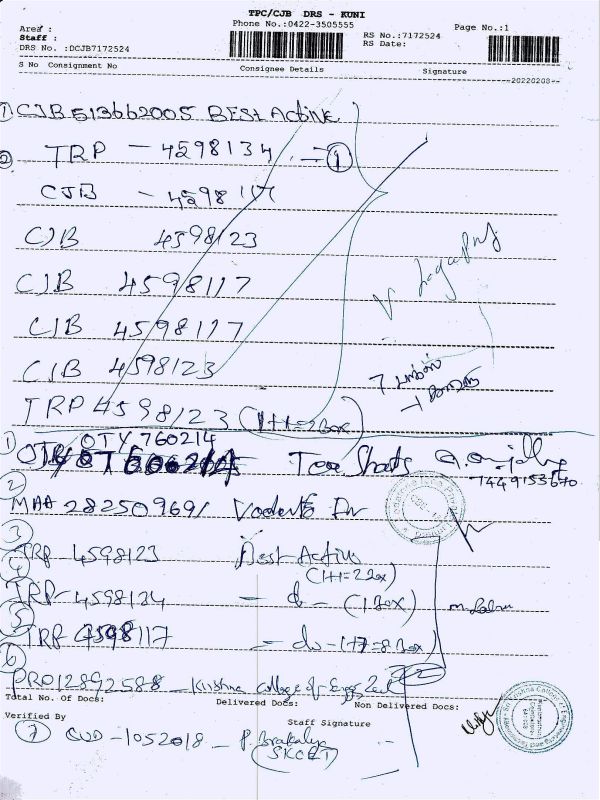 TPC/CJB DRS - KUNI
Phone No.:0422-3505555
Area :
Staff :
DRS No. :DCJB7172524
RS No.:7172524
RS Date:
Page No.:1
S No Consignment No Consignee Details Signature
--20220208--
① CJB 513662005 BEST Active
② TRP - 4598134 ①
CJB - 4598117
CJB 4598123
CJB 4598117
CJB 4598117
CJB 4598123
TRP 4598123 (1+1=2 Box)
① OTY 760214
7449153670
② MAA 282509691
③ TRP 4598123 Best Active
(1+1=2 Box)
④ TRP 4598134 - do - (1 Box)
⑤ TRP 4598117 - do - 1+7=8 Box)
⑥ PRO12892588 - Krishna College of Engg
Total No. Of Docs: Delivered Docs: Non Delivered Docs:
Verified By Staff Signature
⑦ - 1052018 -
(SKCET)